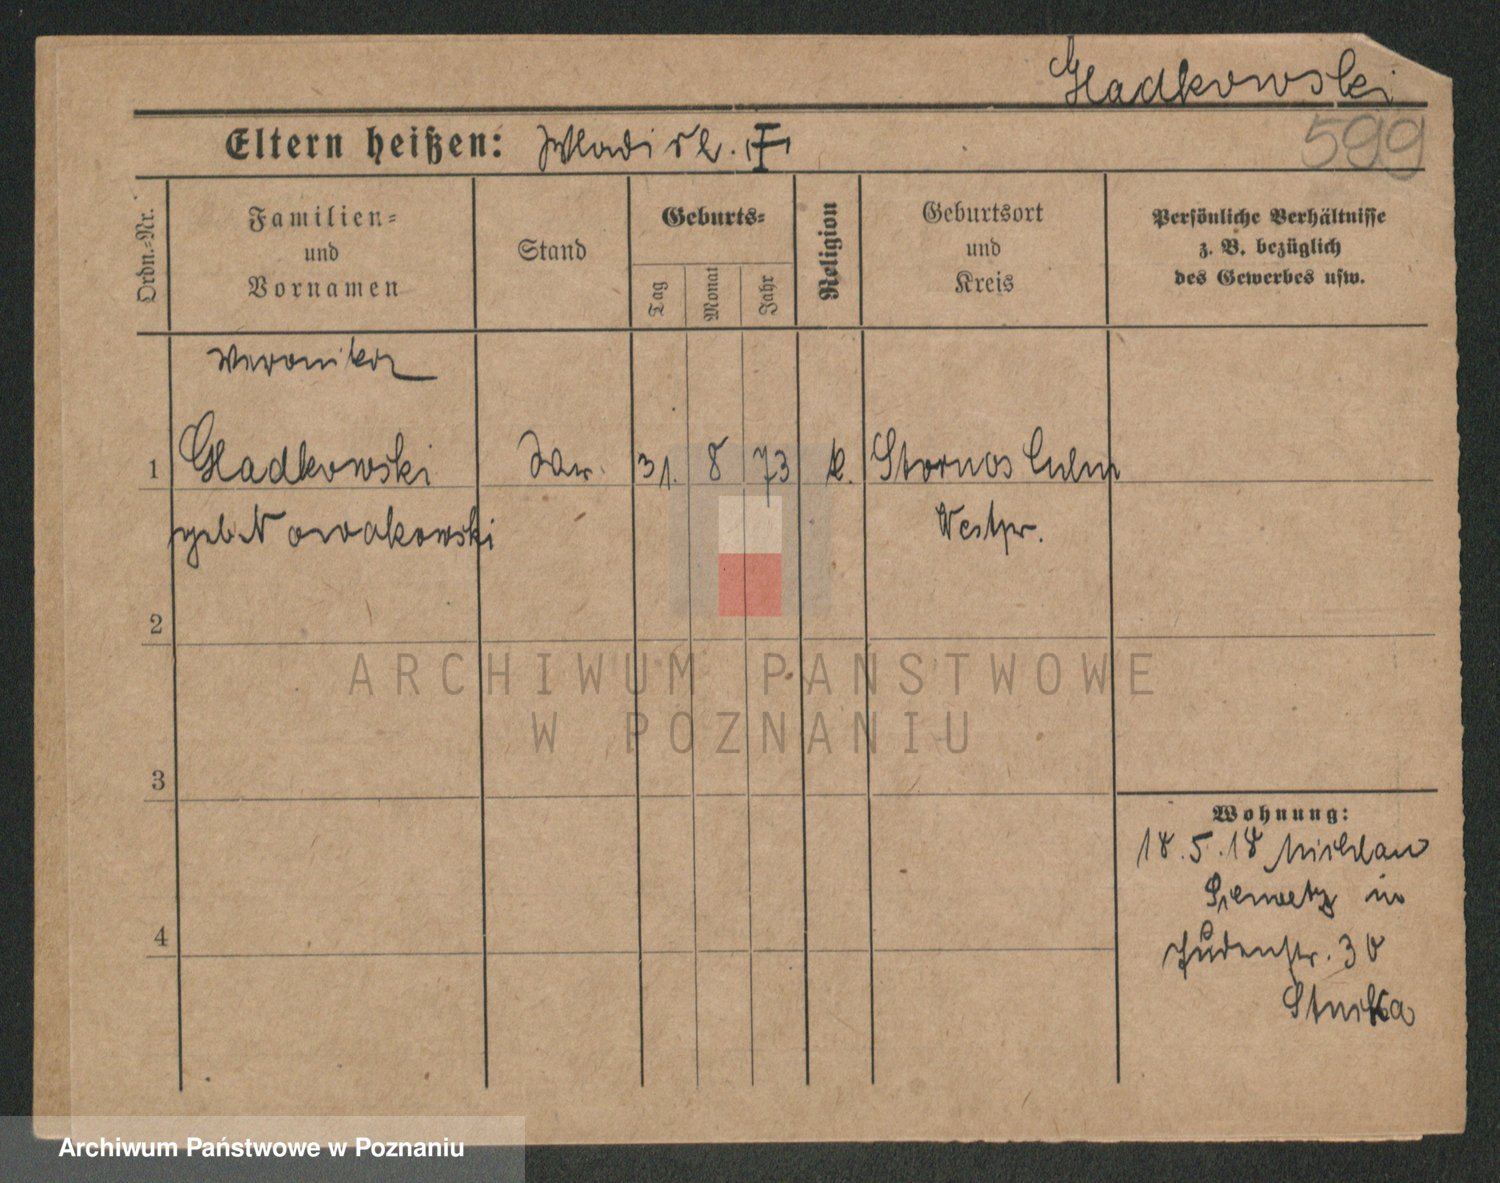 Gladkowski
599
Eltern heißen: Wladisl.
Ordn.-Nr.
Familien-
und
Vornamen
Stand
Geburts-
Tag
Monat
Jahr
Religion
Geburtsort
und
Kreis
Persönliche Verhältnisse
z. B. bezüglich
des Gewerbes usw.
Weronika
1 Gladkowski Ww. 31. 8 73 k. Culm
geb. Nowakowski Westpr.
2
ARCHIWUM PAŃSTWOWE
W POZNANIU
3
Wohnung:
18.5.18
in
4
Judenstr. 30
Archiwum Państwowe w Poznaniu